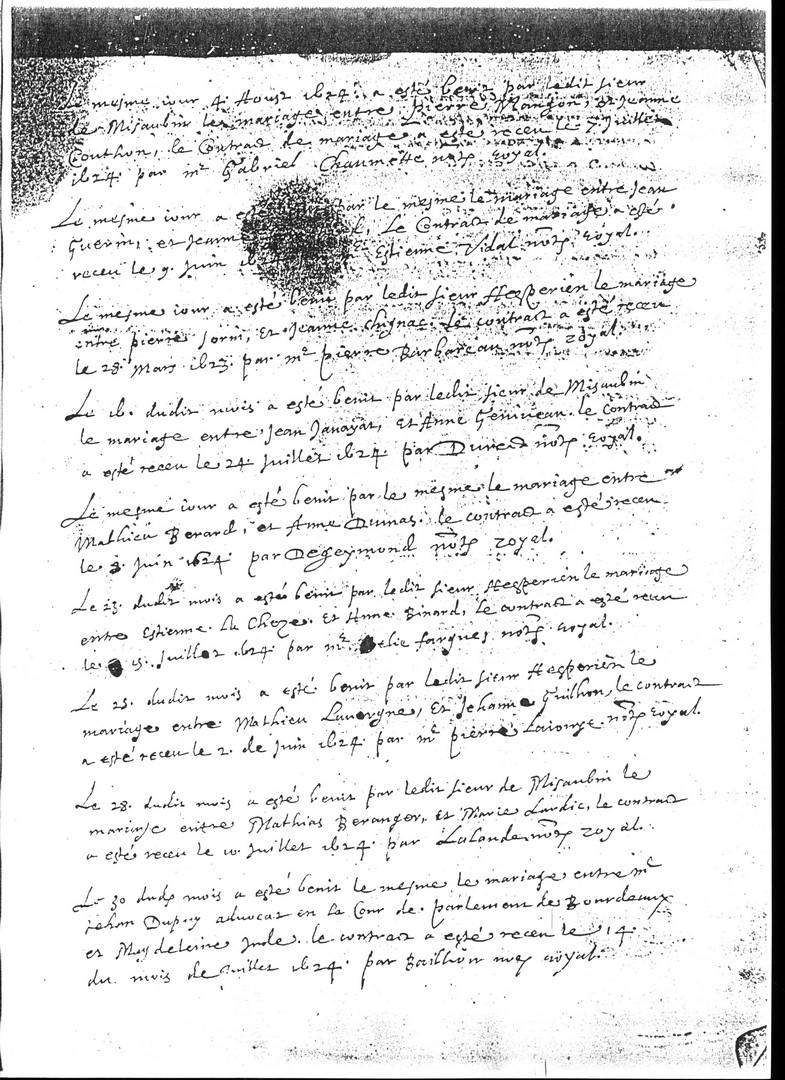 Le mesme iour 4. Aoust 1624. a esté benit par ledit sieur
de Misaubin le mariage entre Pierre et Jeanne
Couthon, le Contract de mariage a esté receu le 7 Juillet
1624. par me Gabriel Chaumette notre royal.
Le mesme iour a esté par le mesme le mariage entre Jean
Guerin, et Jeanne Le Contract de mariage a esté
receu le 9. Juin Estienne Vidal notre royal.
Le mesme iour a esté benit par ledit sieur Hesperien le mariage
entre pierre Jorin, Et Jeanne Chignac. le contract a esté receu
le 28. Mars 1623. par me pierre Barbareau notre royal.
Le 16. dudit mois a esté benit par ledit sieur de Misaubin
le mariage entre Jean Janayat, Et Anne le Contract
a esté receu le 24 Juillet 1624 par notre royal.
Le mesme iour a esté benit par le mesme le mariage entre
Mathieu Berard, et Anne Dumas. le contract a esté receu
le 3 Juin 1624. par Degeymond notre royal.
Le 23. dudit mois a esté benit par ledit sieur Hesperien le mariage
entre Estienne La Cheze. Et Anne Binard, le contract a esté receu
le 15. Juillet 1624. par me Helie fargues notre royal.
Le 25. dudit mois a esté benit par ledit sieur Hesperien le
mariage entre Mathieu Lauergne, Et Jehanne Guilhon, le contract
a esté receu le 2. de Juin 1624. par me pierre notre royal.
Le 28. dudit mois a esté benit par ledit sieur de Misaubin le
mariage entre Mathias Beranger, Et Marie Lardic, le contract
a esté receu le 10. Juillet 1624. par Lalande notre royal.
Le 30 dudit mois a esté benit le mesme le mariage entre me
Jehan Dupuy aduocat en la Cour de parlement de Bourdeaux
et Magdeleine Jude. le contract a esté receu le 14.
du mois de Juillet 1624. par notre royal.